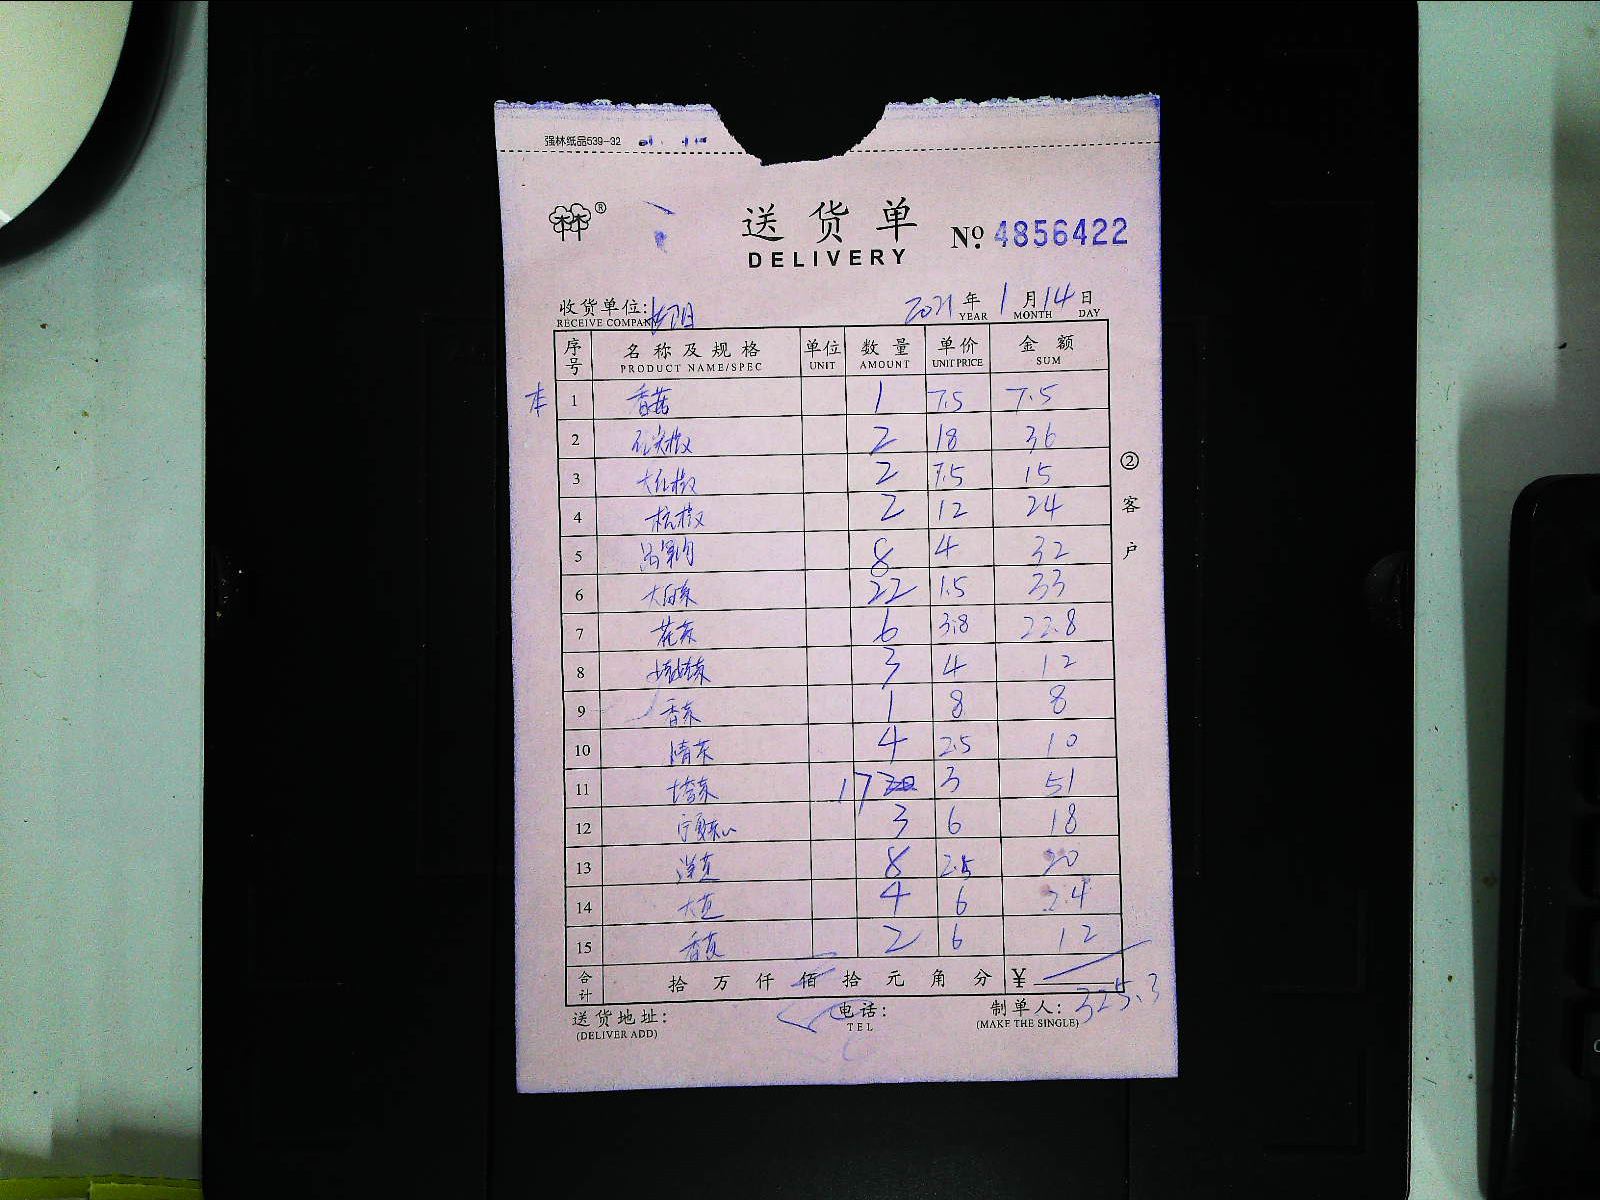 强林纸品539-32
®
送货单
DELIVERY
№ 4856422
收货单位:
RECEIVE COMPANY
2021年1月14日
YEAR MONTH DAY
序号 名称及规格 单位 数量 单价 金额
PRODUCT NAME/SPEC UNIT AMOUNT UNIT PRICE SUM
本 1 香菇 1 7.5 7.5
2 2 18 36
3 大红椒 2 7.5 15
4 杭椒 2 12 24
5 8 4 32
6 大白菜 22 1.5 33
7 花菜 6 3.8 22.8
8 3 4 12
9 香菜 1 8 8
10 清菜 4 2.5 10
11 塔菜 17 3 51
12 宁夏菜心 3 6 18
13 洋芋 8 2.5 20
14 4 6 24
15 2 6 12
合计 拾万仟佰拾元角分 ¥ 325.3
送货地址: 电话: 制单人:
(DELIVER ADD) TEL (MAKE THE SINGLE)
②客户